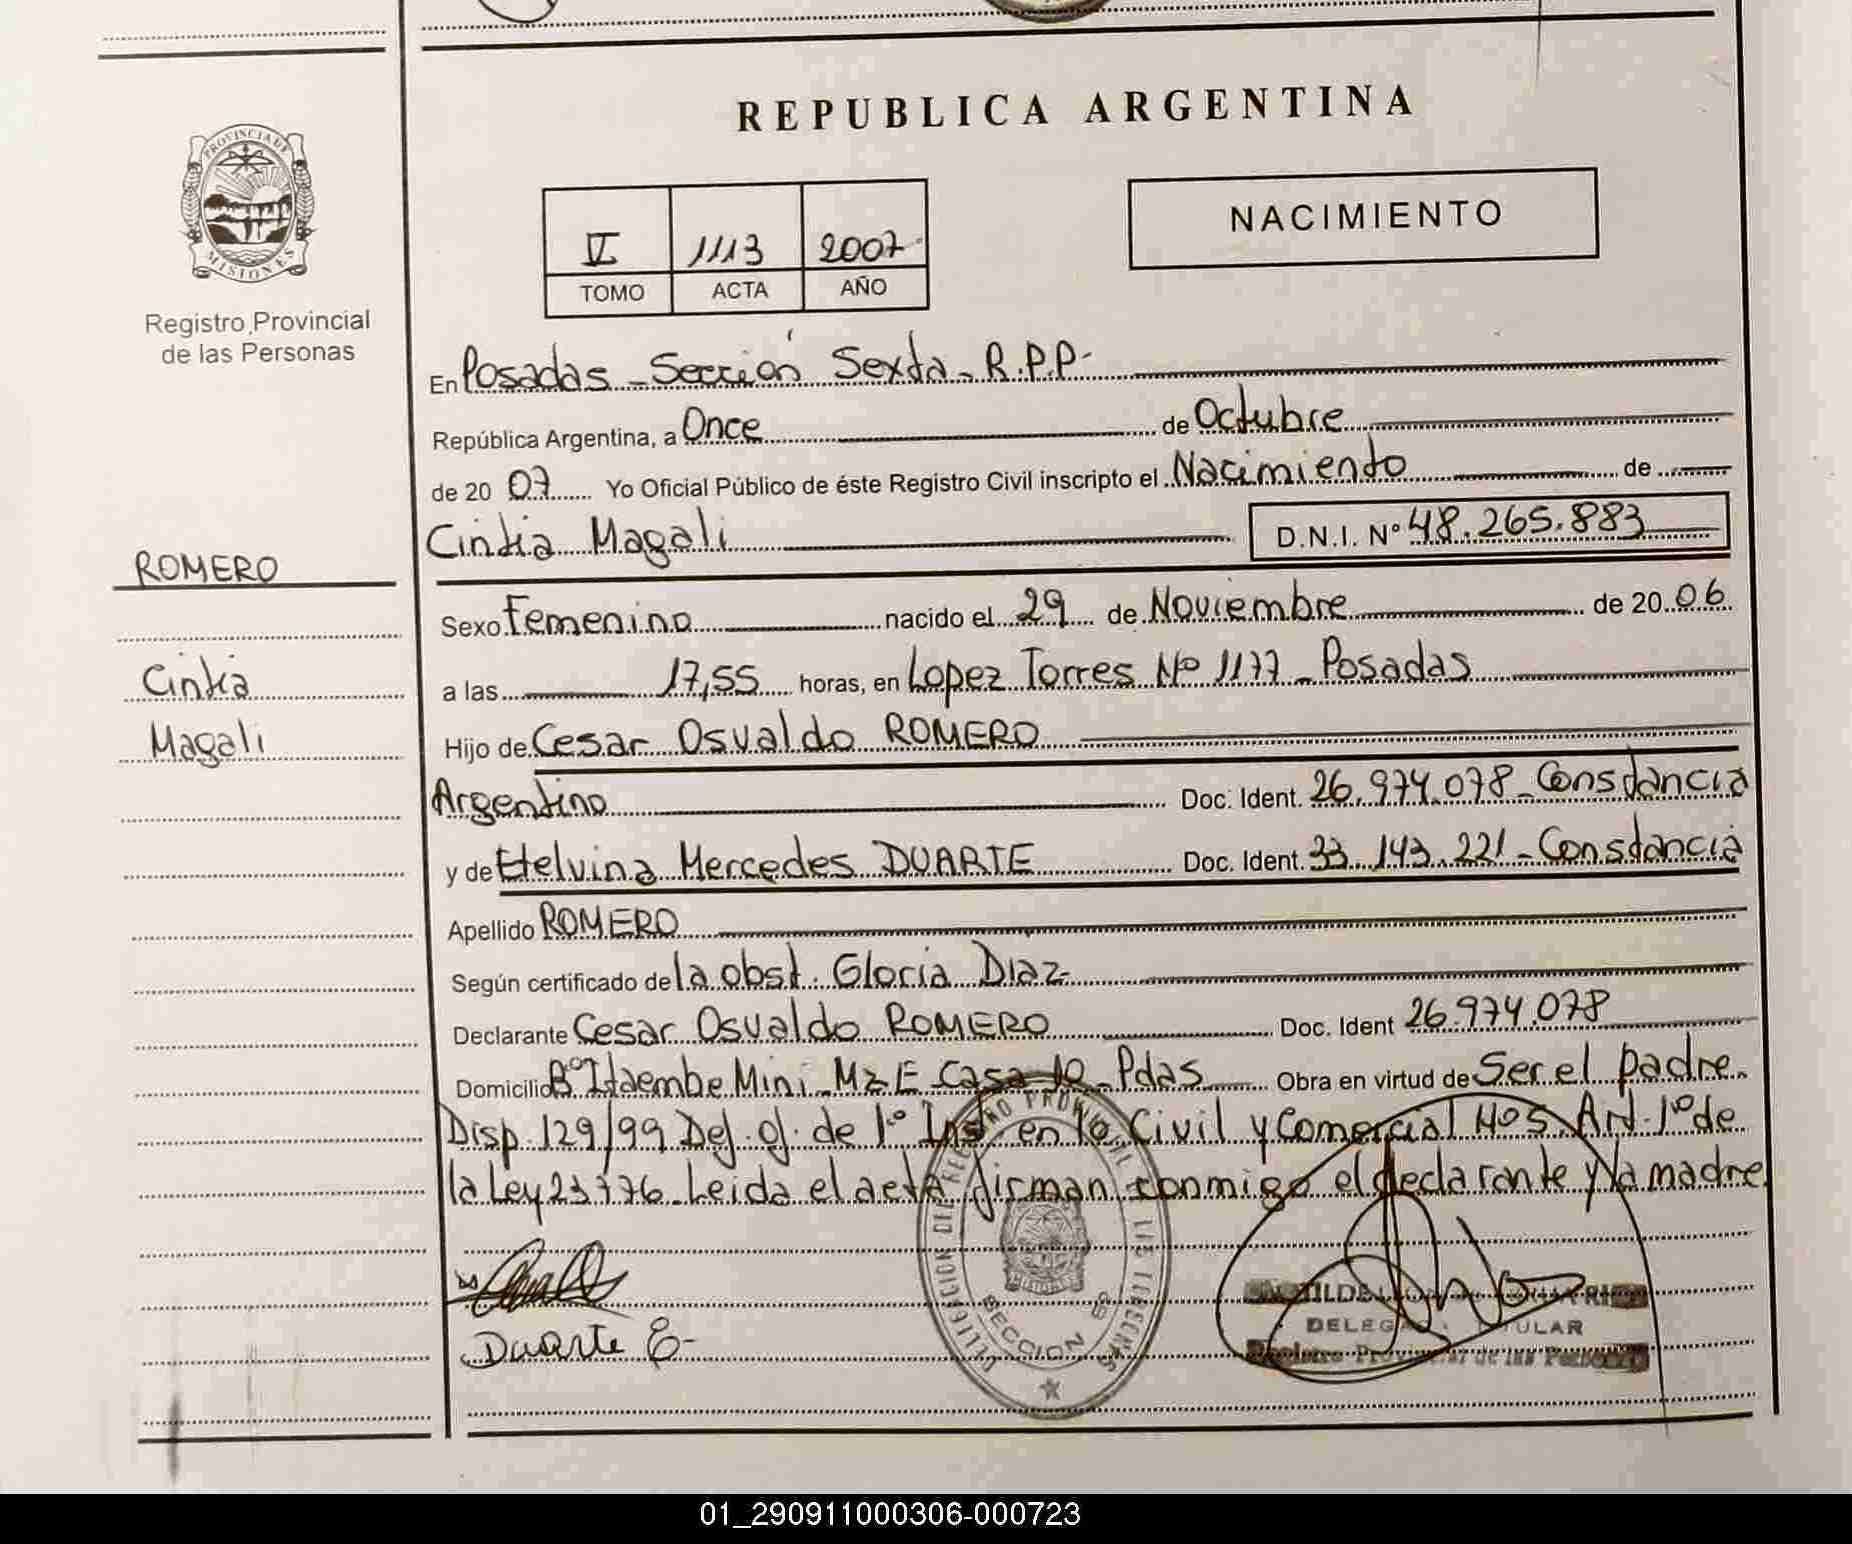 REPUBLICA ARGENTINA
PROVINCIA DE MISIONES
Registro Provincial
de las Personas
VI 1113 2007
TOMO ACTA AÑO
NACIMIENTO
En Posadas - Sección Sexta - R.P.P-
República Argentina, a Once de Octubre
de 20 07 Yo Oficial Público de éste Registro Civil inscripto el Nacimiento de
Cintia Magali D.N.I. Nº 48.265.883
ROMERO
Cintia
Magali
Sexo Femenino nacido el 29 de Noviembre de 20 06
a las 17,55 horas, en Lopez Torres Nº 1177 - Posadas
Hijo de Cesar Osvaldo ROMERO
Argentino Doc. Ident. 26.974.078 - Constancia
y de Etelvina Mercedes DUARTE Doc. Ident. 33.143.221 - Constancia
Apellido ROMERO
Según certificado de la obst. Gloria Diaz
Declarante Cesar Osvaldo ROMERO Doc. Ident 26.974.078
Domicilio Bº Itaembe Mini - Mz E - Casa 10 - Pdas Obra en virtud de Ser el padre
Disp. 129/99 Def. of. de 1º Inst en lo Civil y Comercial Nº 5 Art. 1º de
la Ley 23776 - Leida el acta firman conmigo el declarante y la madre
Duarte E-
SECCION 6º
DELEGADA TITULAR
Registro Provincial de las Personas
01_290911000306-000723